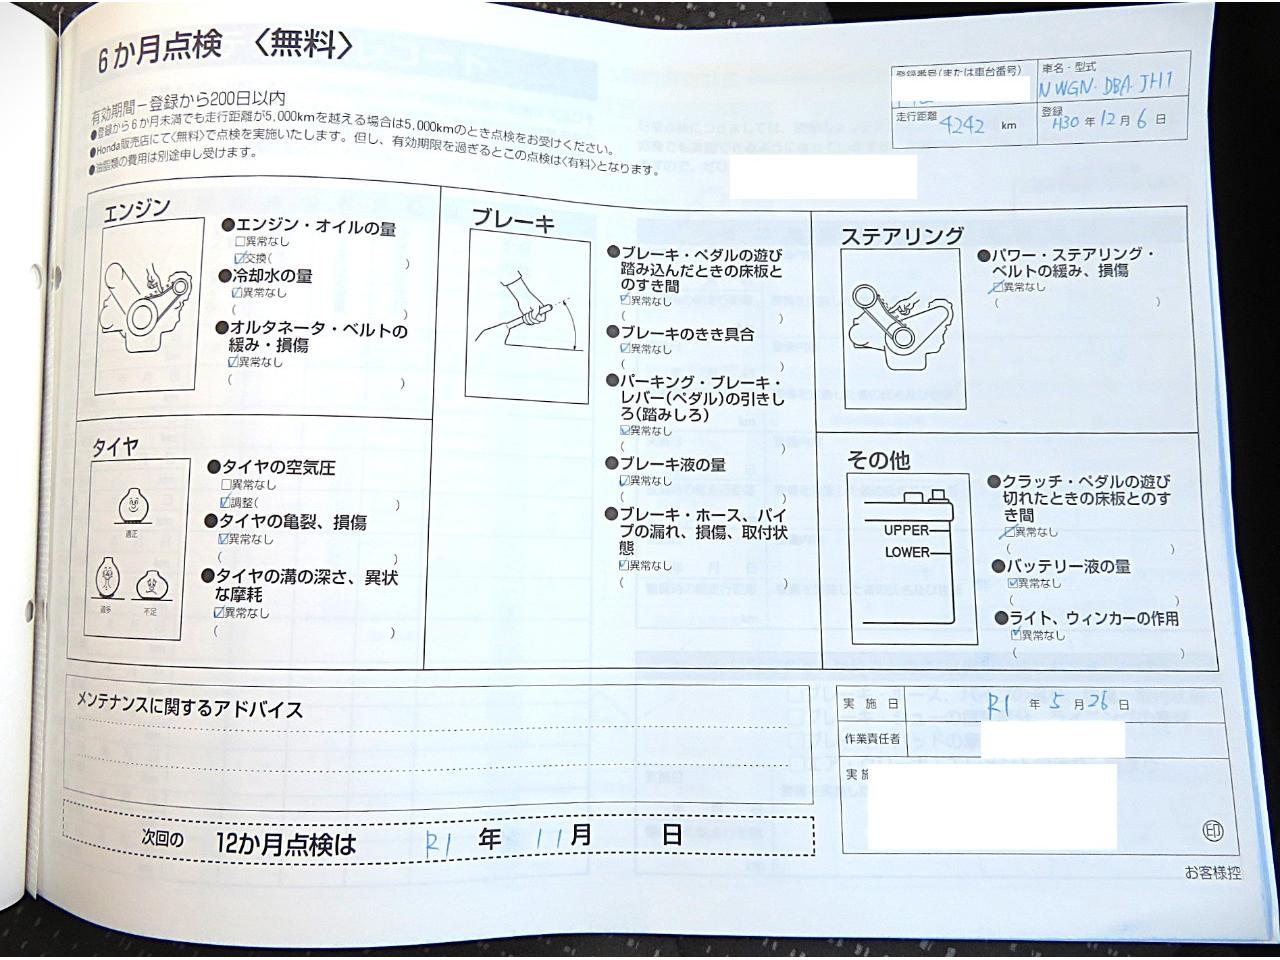 6か月点検 〈無料〉
有効期間－登録から200日以内
●登録から6か月未満でも走行距離が5,000kmを越える場合は5,000kmのとき点検をお受けください。
●Honda販売店にて〈無料〉で点検を実施いたします。但し、有効期限を過ぎるとこの点検は〈有料〉となります。
●油脂類の費用は別途申し受けます。
登録番号(または車台番号)
車名・型式
NWGN・DBA-JH1
走行距離 4242 km
登録 H30 年 12 月 6 日
エンジン
●エンジン・オイルの量
□異常なし
☑交換( )
●冷却水の量
☑異常なし
( )
●オルタネータ・ベルトの
緩み・損傷
☑異常なし
( )
タイヤ
適正
過多 不足
●タイヤの空気圧
□異常なし
☑調整( )
●タイヤの亀裂、損傷
☑異常なし
( )
●タイヤの溝の深さ、異状
な摩耗
☑異常なし
( )
ブレーキ
●ブレーキ・ペダルの遊び
踏み込んだときの床板と
のすき間
☑異常なし
( )
●ブレーキのきき具合
☑異常なし
( )
●パーキング・ブレーキ・
レバー(ペダル)の引きし
ろ(踏みしろ)
☑異常なし
( )
●ブレーキ液の量
☑異常なし
( )
●ブレーキ・ホース、パイ
プの漏れ、損傷、取付状
態
☑異常なし
( )
ステアリング
●パワー・ステアリング・
ベルトの緩み、損傷
□異常なし
( )
その他
UPPER
LOWER
●クラッチ・ペダルの遊び
切れたときの床板とのす
き間
□異常なし
( )
●バッテリー液の量
☑異常なし
( )
●ライト、ウィンカーの作用
☑異常なし
( )
メンテナンスに関するアドバイス
次回の 12か月点検は R1 年 11 月 日
実施日 R1 年 5 月 26 日
作業責任者
実施
印
お客様控